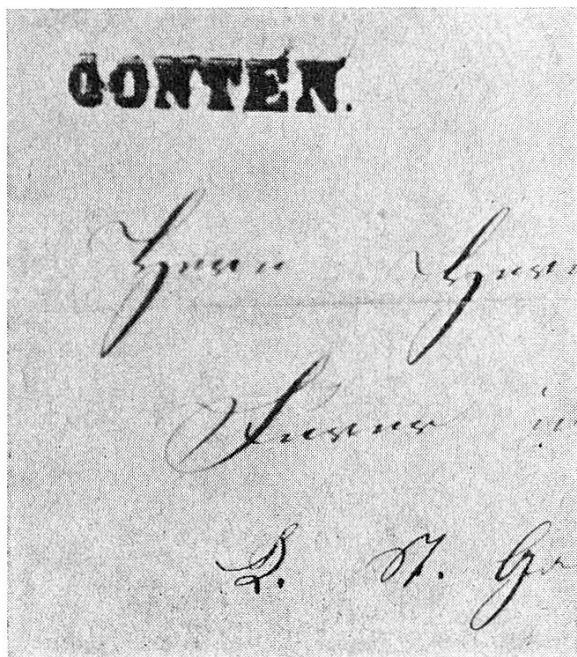 GONTEN.
Herrn Herr
K. St. Ga